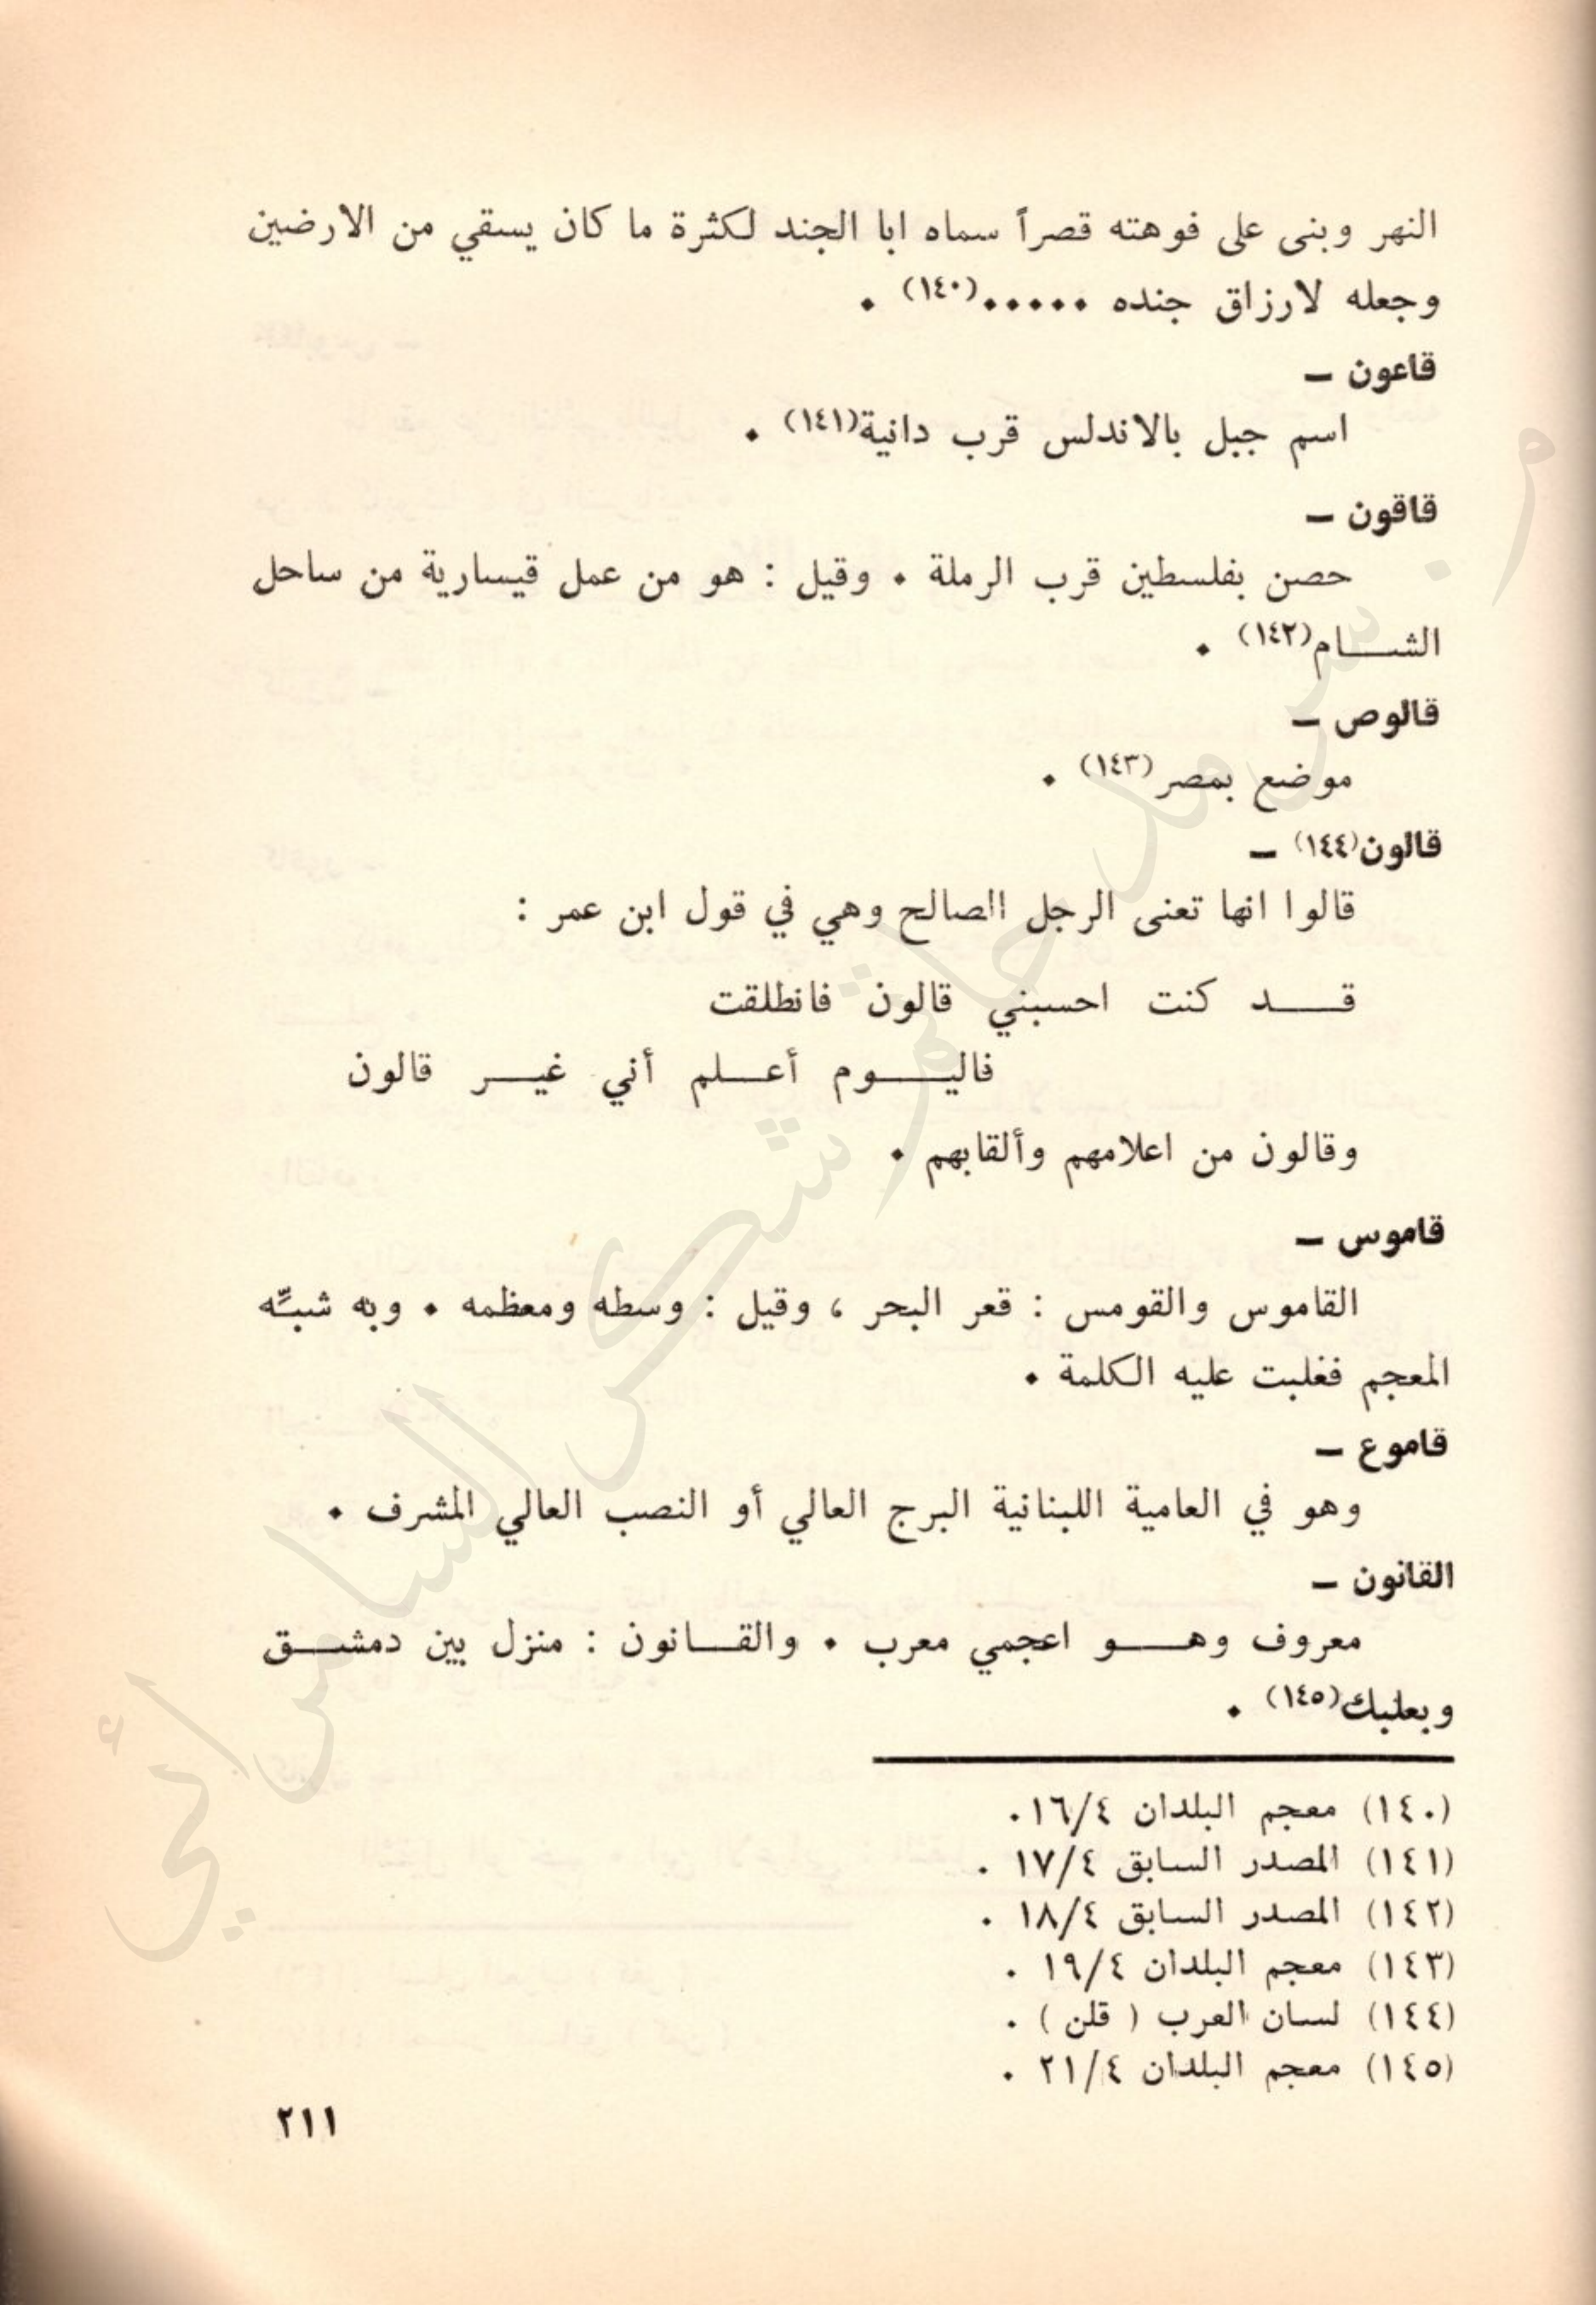 النهر وبنى على فوهته قصراً سماه ابا الجند لكثرة ما كان يسقي من الارضين
وجعله لارزاق جنده ٠٠٠٠٠(١٤٠) ٠
قاعون ـ
اسم جبل بالاندلس قرب دانية(١٤١) ٠
قاقون ـ
حصن بفلسطين قرب الرملة ٠ وقيل : هو من عمل قيسارية من ساحل
الشـــام(١٤٢) ٠
قالوص ـ
موضع بمصر(١٤٣) ٠
قالون(١٤٤) ـ
قالوا انها تعنى الرجل الصالح وهي في قول ابن عمر :
قـــد كنت احسبني قالون فانطلقت
فاليـــوم أعـــلم أني غيـــر قالون
وقالون من اعلامهم وألقابهم ٠
قاموس ـ
القاموس والقومس : قعر البحر ، وقيل : وسطه ومعظمه ٠ وبه شبِّه
المعجم فغلبت عليه الكلمة ٠
قاموع ـ
وهو في العامية اللبنانية البرج العالي أو النصب العالي المشرف ٠
القانون ـ
معروف وهـــو اعجمي معرب ٠ والقـــانون : منزل بين دمشـــق
وبعلبك(١٤٥) ٠
(١٤٠) معجم البلدان ١٦/٤.
(١٤١) المصدر السابق ١٧/٤ .
(١٤٢) المصدر السابق ١٨/٤ .
(١٤٣) معجم البلدان ١٩/٤ .
(١٤٤) لسان العرب ( قلن ) .
(١٤٥) معجم البلدان ٢١/٤ .
٢١١